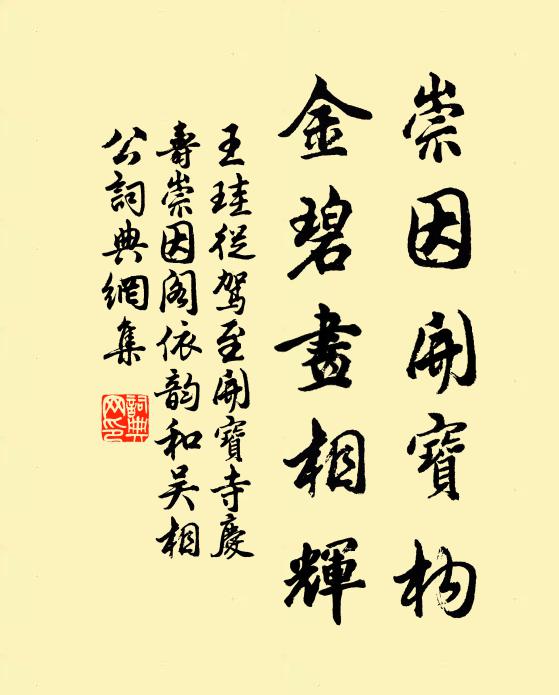 崇因開寶构
金碧畫相輝
王珪從駕至開寶寺慶
壽崇因阁依韵和吴相
公詞典網集
詞典
网印